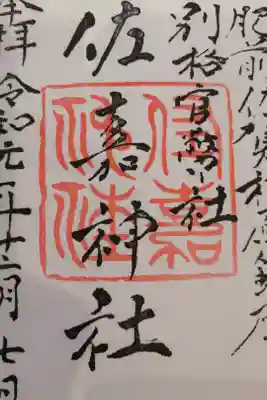 肥前佐賀
別格官幣社
佐嘉神社
奉拝 令和元年十二月七日